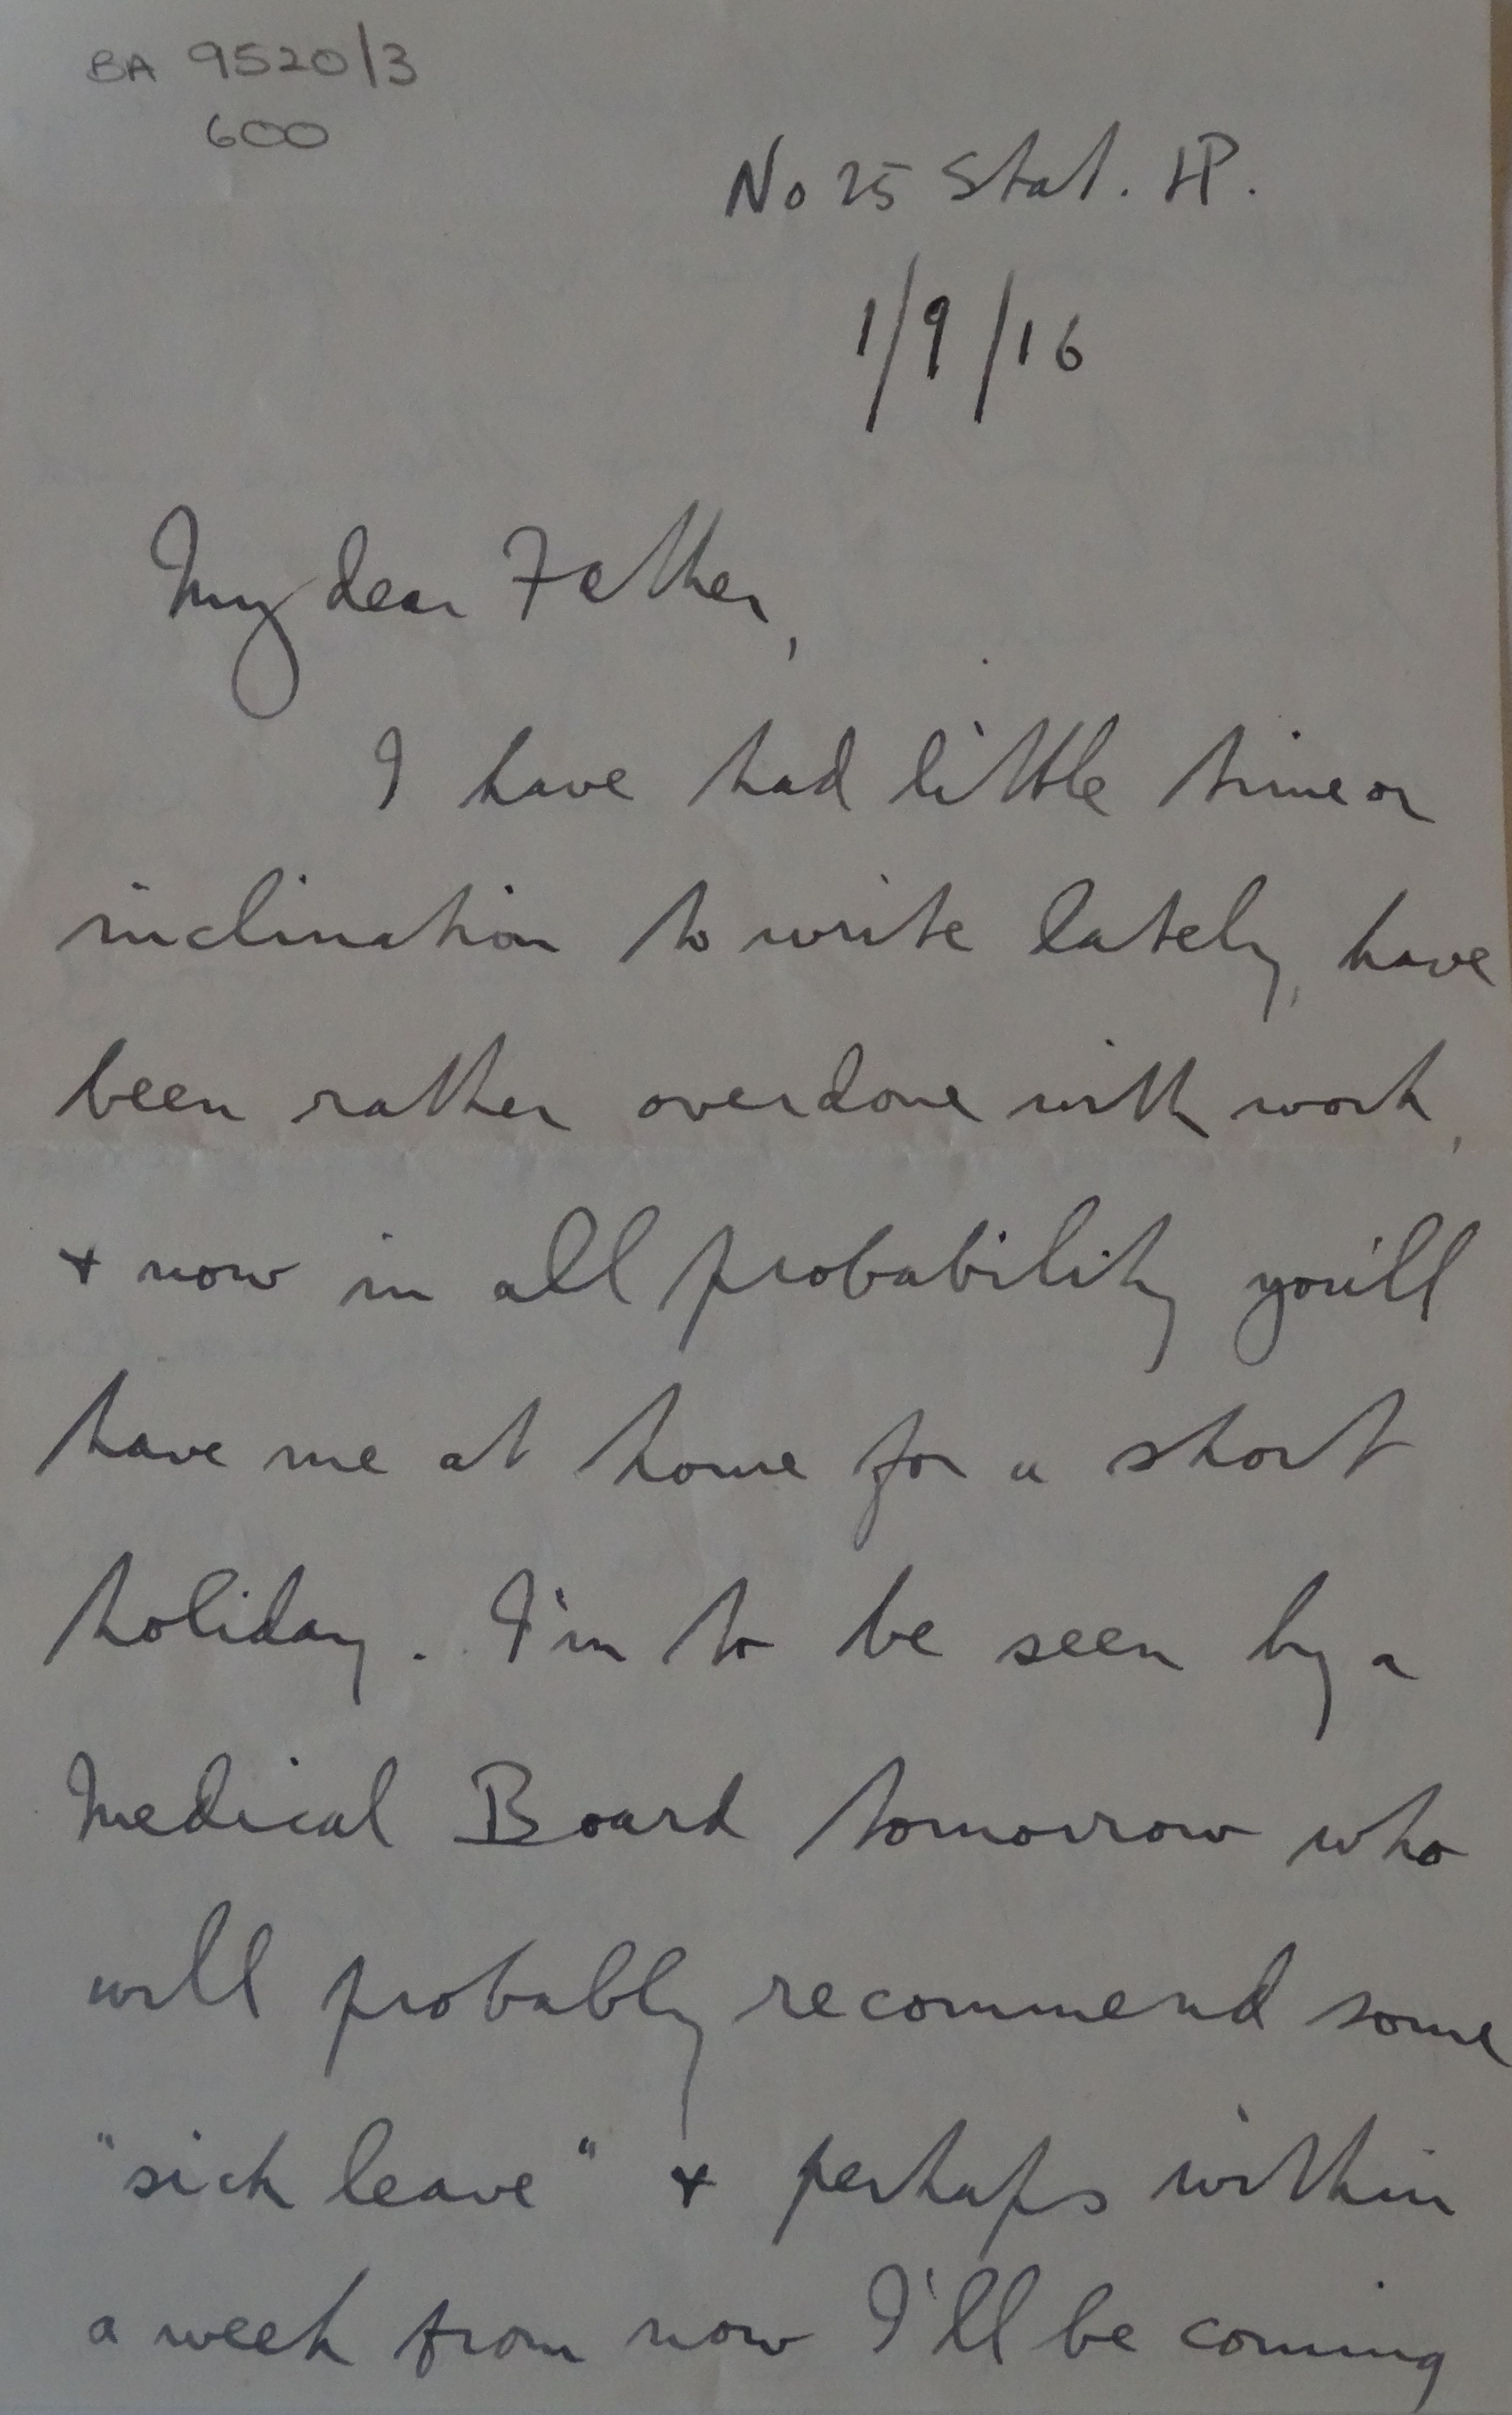 BA 9520/3
600
No 25 Stat. HP.
1/9/16
My dear Father,
I have had little time or
inclination to write lately, have
been rather overdone with work,
+ now in all probability you'll
have me at home for a short
holiday. I'm to be seen by a
Medical Board tomorrow who
will probably recommend some
"sick leave" + perhaps within
a week from now I'll be coming